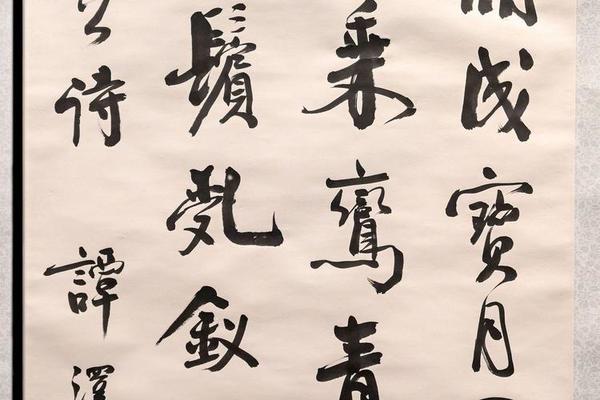 成寶月
乘鸞青
鬢亂釵
公詩 譚澤